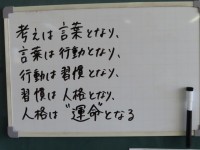 考えは言葉となり、
言葉は行動となり、
行動は習慣となり、
習慣は人格となり、
人格は"運命"となる